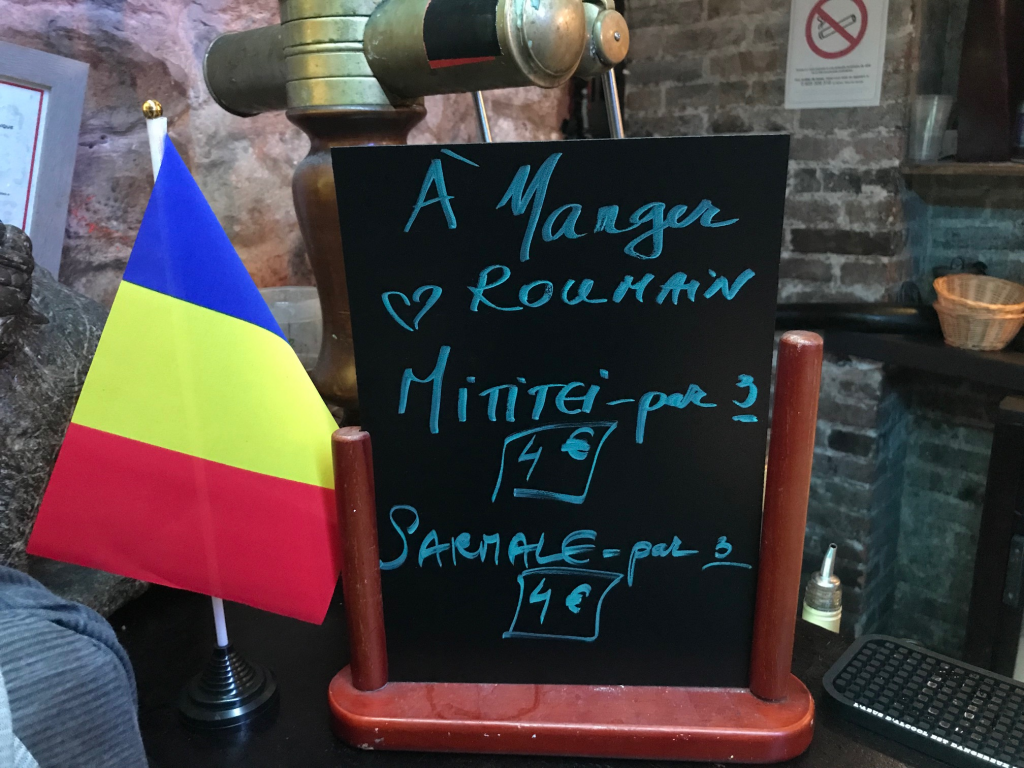 À Manger
ROUMAIN
MITITEI - par 3
4 €
SARMALE - par 3
4 €